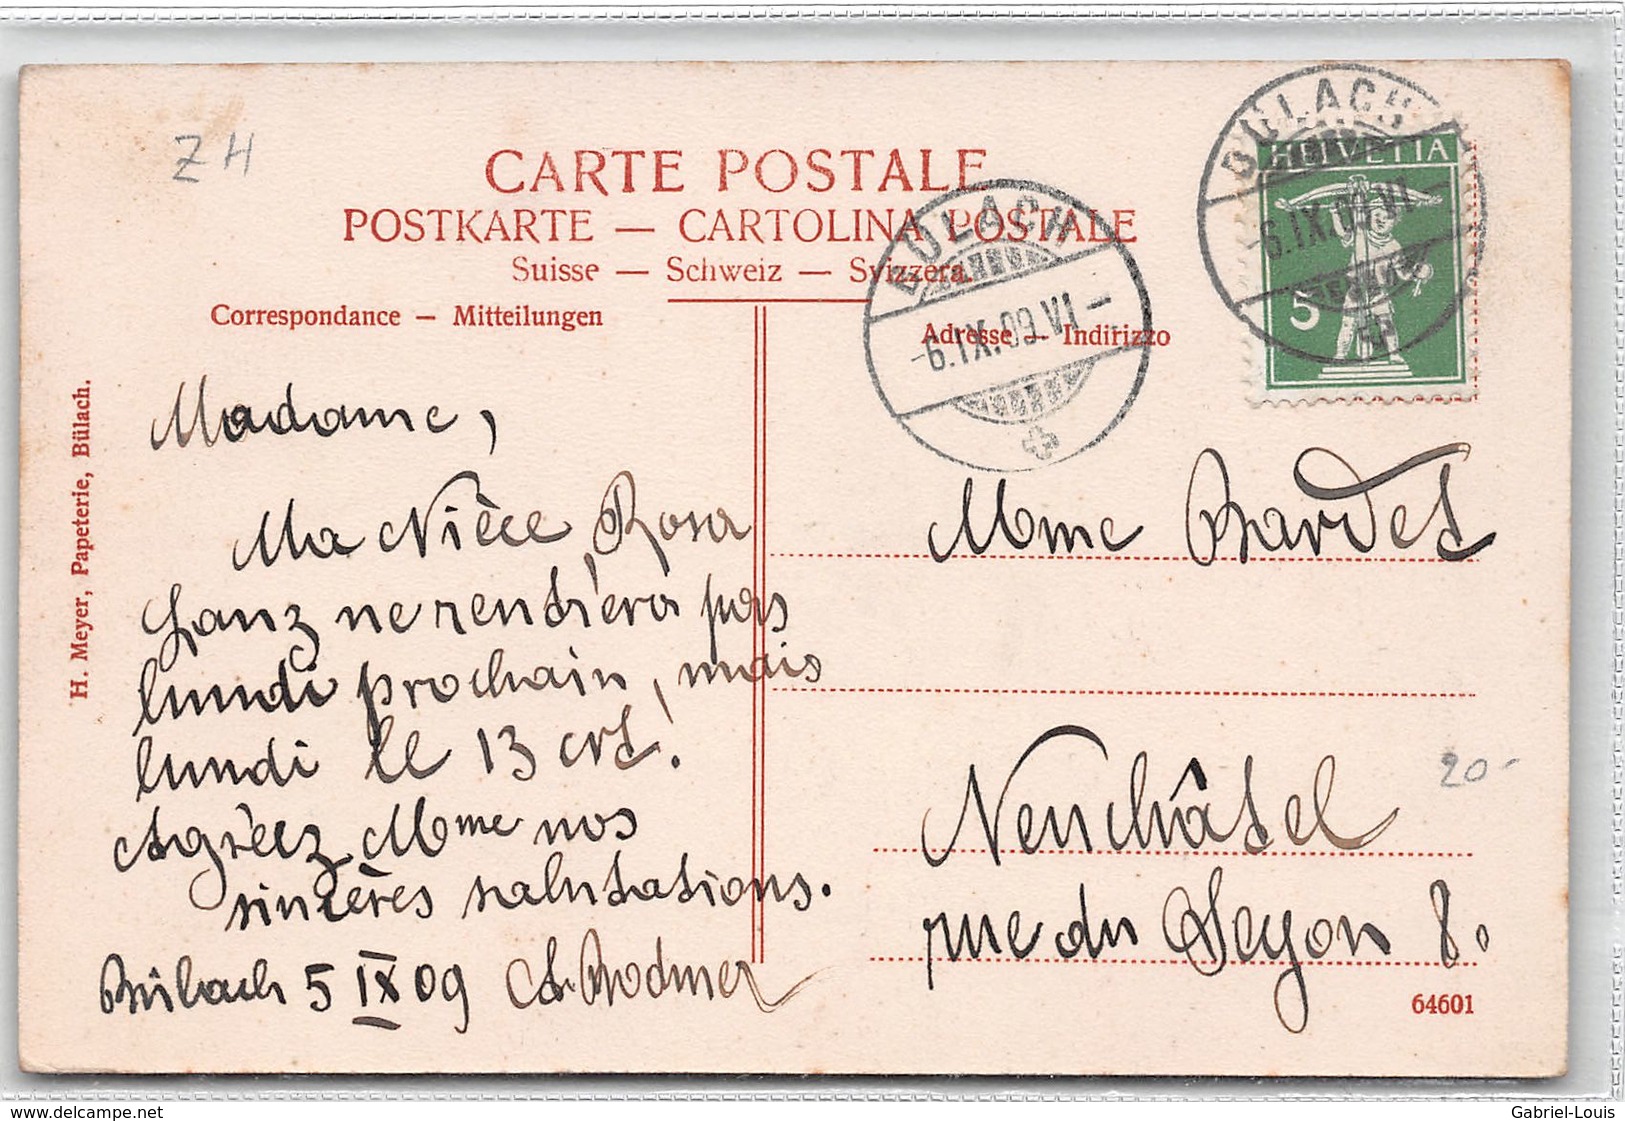 ZH
CARTE POSTALE
POSTKARTE — CARTOLINA POSTALE
Suisse — Schweiz — Svizzera.
Correspondance — Mitteilungen
Adresse — Indirizzo
H. Meyer, Papeterie, Bülach.
BÜLACH
-6.IX.09.VI-
BÜLACH
-6.IX.09.VI-
HELVETIA
5
Madame,
Ma Nièce, Rosa
Lanz ne rentrera pas
lundi prochain, mais
lundi le 13 crt!
Agréez Mme nos
sincères salutations.
Bülach 5 IX 09 A. Bodmer
Mme Bardet
Neuchâtel
rue du Seyon 8.
20.-
64601
www.delcampe.net
Gabriel-Louis